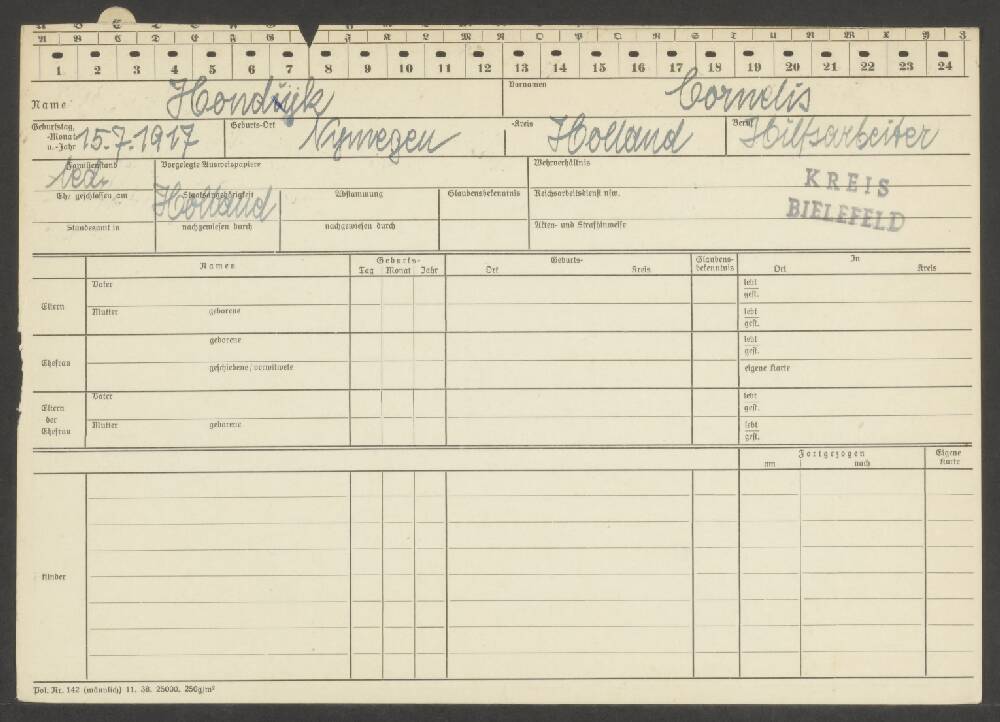 A B C D E F G J K L M N O P Q R S T U V W X Y Z
1 2 3 4 5 6 7 8 9 10 11 12 13 14 15 16 17 18 19 20 21 22 23 24
Name Hondijk Vornamen Cornelis
Geburtstag, -Monat u. -Jahr 15.7.1917 Geburts-Ort Nijmegen -Kreis Holland Beruf Hilfsarbeiter
Familienstand led. Vorgelegte Ausweispapiere Wehrverhältnis
KREIS
BIELEFELD
Ehe geschlossen am Staatsangehörigkeit Holland Abstammung Glaubensbekenntnis Reichsarbeitsdienst usw.
Standesamt in nachgewiesen durch nachgewiesen durch Akten- und Strafhinweise
Namen Geburts- Tag Monat Jahr Geburts- Ort Kreis Glaubens-bekenntnis In Ort Kreis
Eltern Vater lebt gest.
Mutter geborene lebt gest.
Ehefrau geborene lebt gest.
geschiedene, verwitwete eigene Karte
Eltern der Ehefrau Vater lebt gest.
Mutter geborene lebt gest.
Fortgezogen am nach Eigene Karte
Kinder
Pol. Nr. 142 (männlich) 11. 38. 25000. 250g/m²